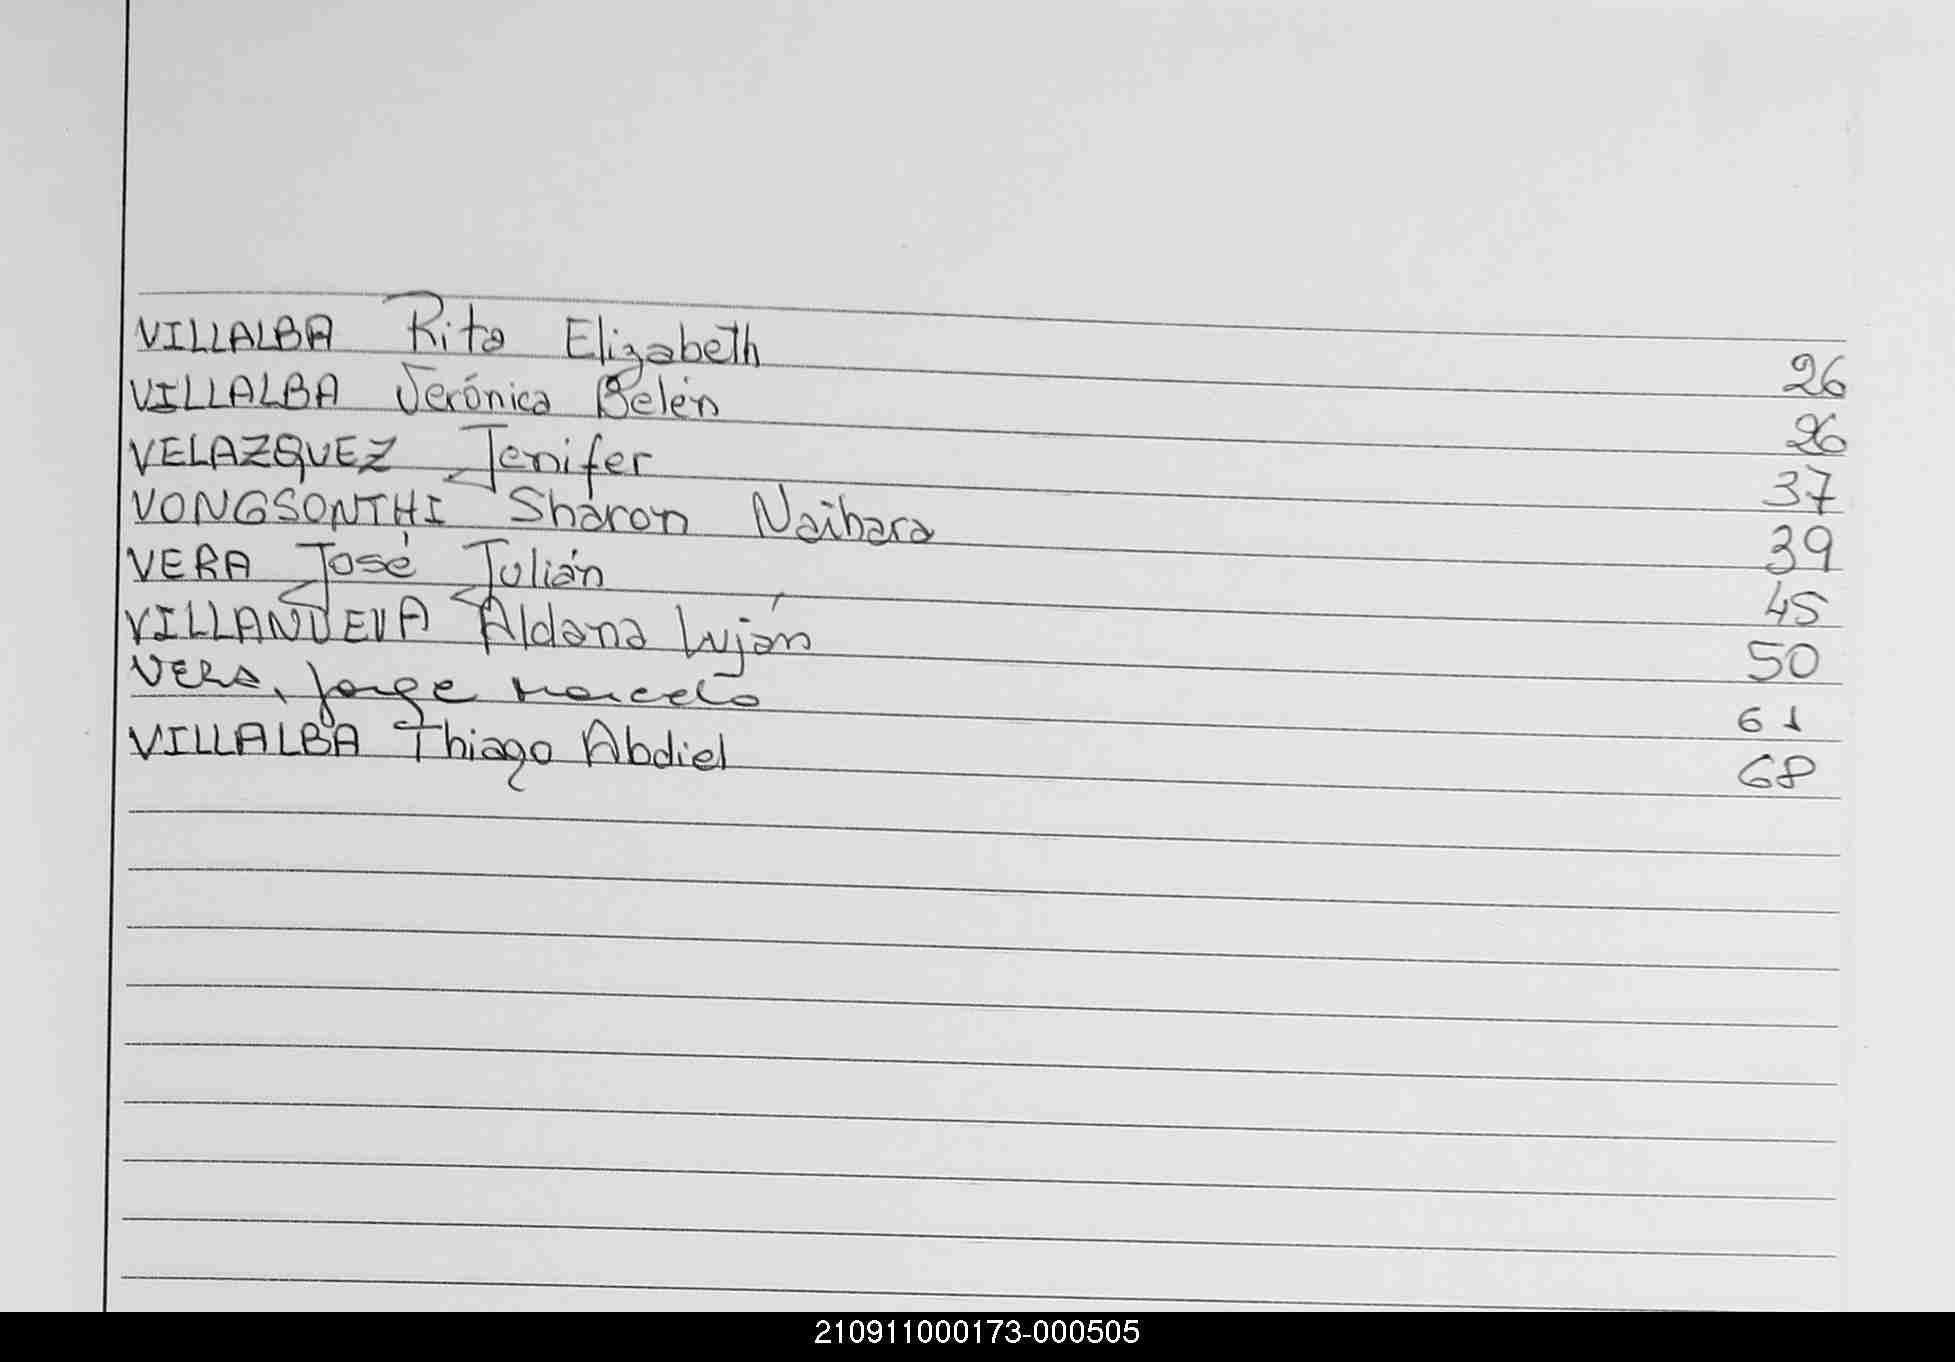 VILLALBA Rita Elizabeth 26
VILLALBA Verónica Belén 26
VELAZQUEZ Jenifer 37
VONGSONTHI Sharon Naihara 39
VERA José Julián 45
VILLANUEVA Aldana Luján 50
VERA, Jorge Marcelo 61
VILLALBA Thiago Abdiel 68
210911000173-000505